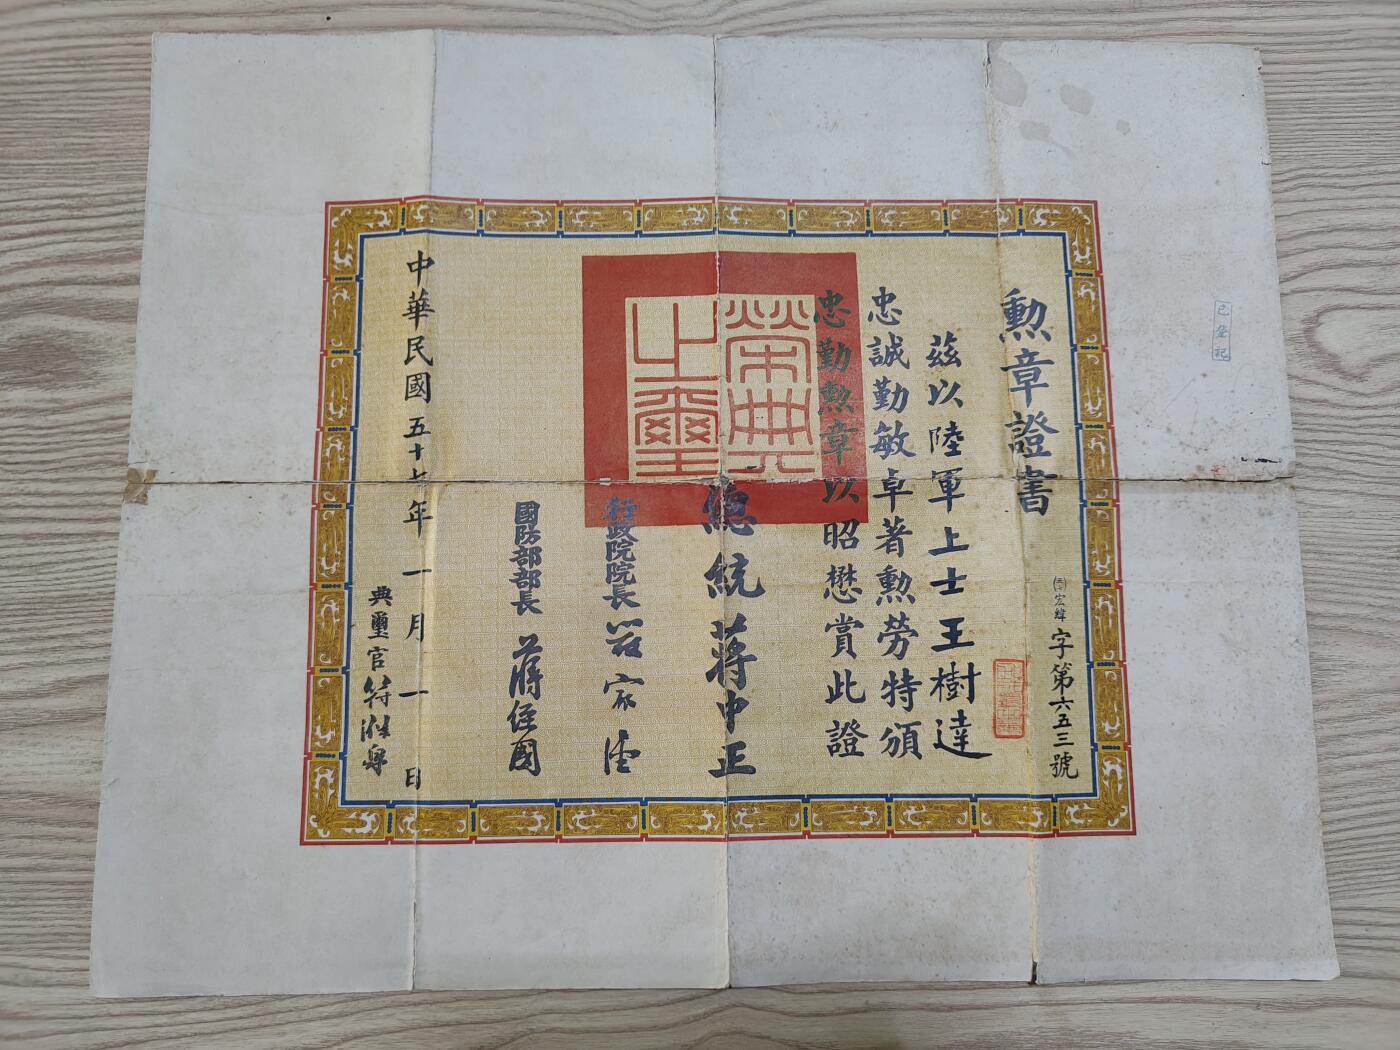 已登記
勲章證書
宏緯字第六五三號
茲以陸軍上士王樹達
忠誠勤敏卓著勲勞特頒
忠勤勲章以昭懋賞此證
榮典之璽
總統蔣中正
行政院院長嚴家淦
國防部部長蔣經國
中華民國五十七年一月一日
典璽官